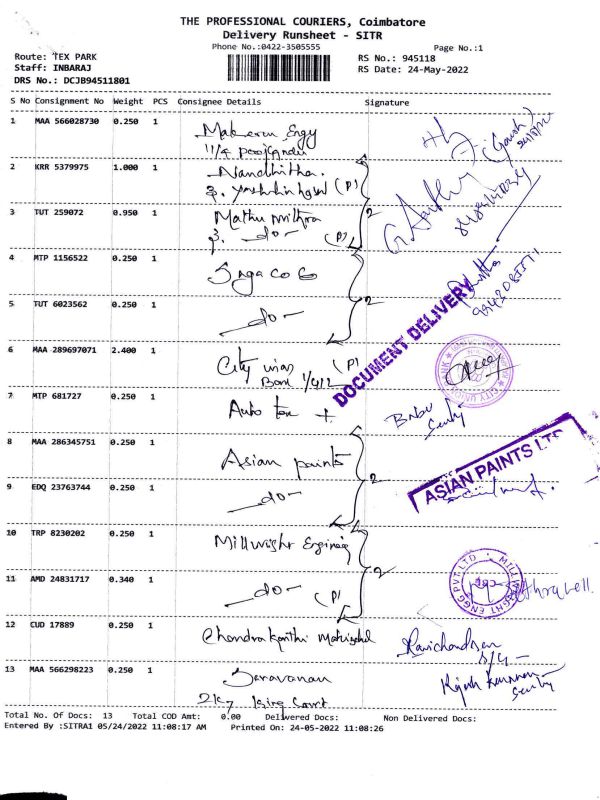 THE PROFESSIONAL COURIERS, Coimbatore
Delivery Runsheet - SITR
Phone No.:0422-3505555
Page No.:1
Route: TEX PARK
RS No.: 945118
Staff: INBARAJ
RS Date: 24-May-2022
DRS No.: DCJB94511801
S No Consignment No Weight PCS Consignee Details Signature
1 MAA 566028730 0.250 1
2 KRR 5379975 1.000 1 Nandhitha.
(P)
3 TUT 259072 0.950 1 Mathu mithra
3. -do- (P) 2
4 MTP 1156522 0.250 1
5 TUT 6023562 0.250 1 -do- 2
DOCUMENT DELIVERY
6 MAA 289697071 2.400 1 City (P)
CITY UNION BANK
7 MTP 681727 0.250 1 Auto tax Babu
8 MAA 286345751 0.250 1 Asian paints
ASIAN PAINTS LTD
9 EDQ 23763744 0.250 1 -do- 2
10 TRP 8230202 0.250 1 Millwright
MILLWRIGHT ENGG PVT LTD
11 AMD 24831717 0.340 1 -do- (P) 2
12 CUD 17889 0.250 1 Chandrakanthi Ravichandran
13 MAA 566298223 0.250 1 Saravanan
Total No. Of Docs: 13 Total COD Amt: 0.00 Delivered Docs: Non Delivered Docs:
Entered By :SITRA1 05/24/2022 11:08:17 AM Printed On: 24-05-2022 11:08:26